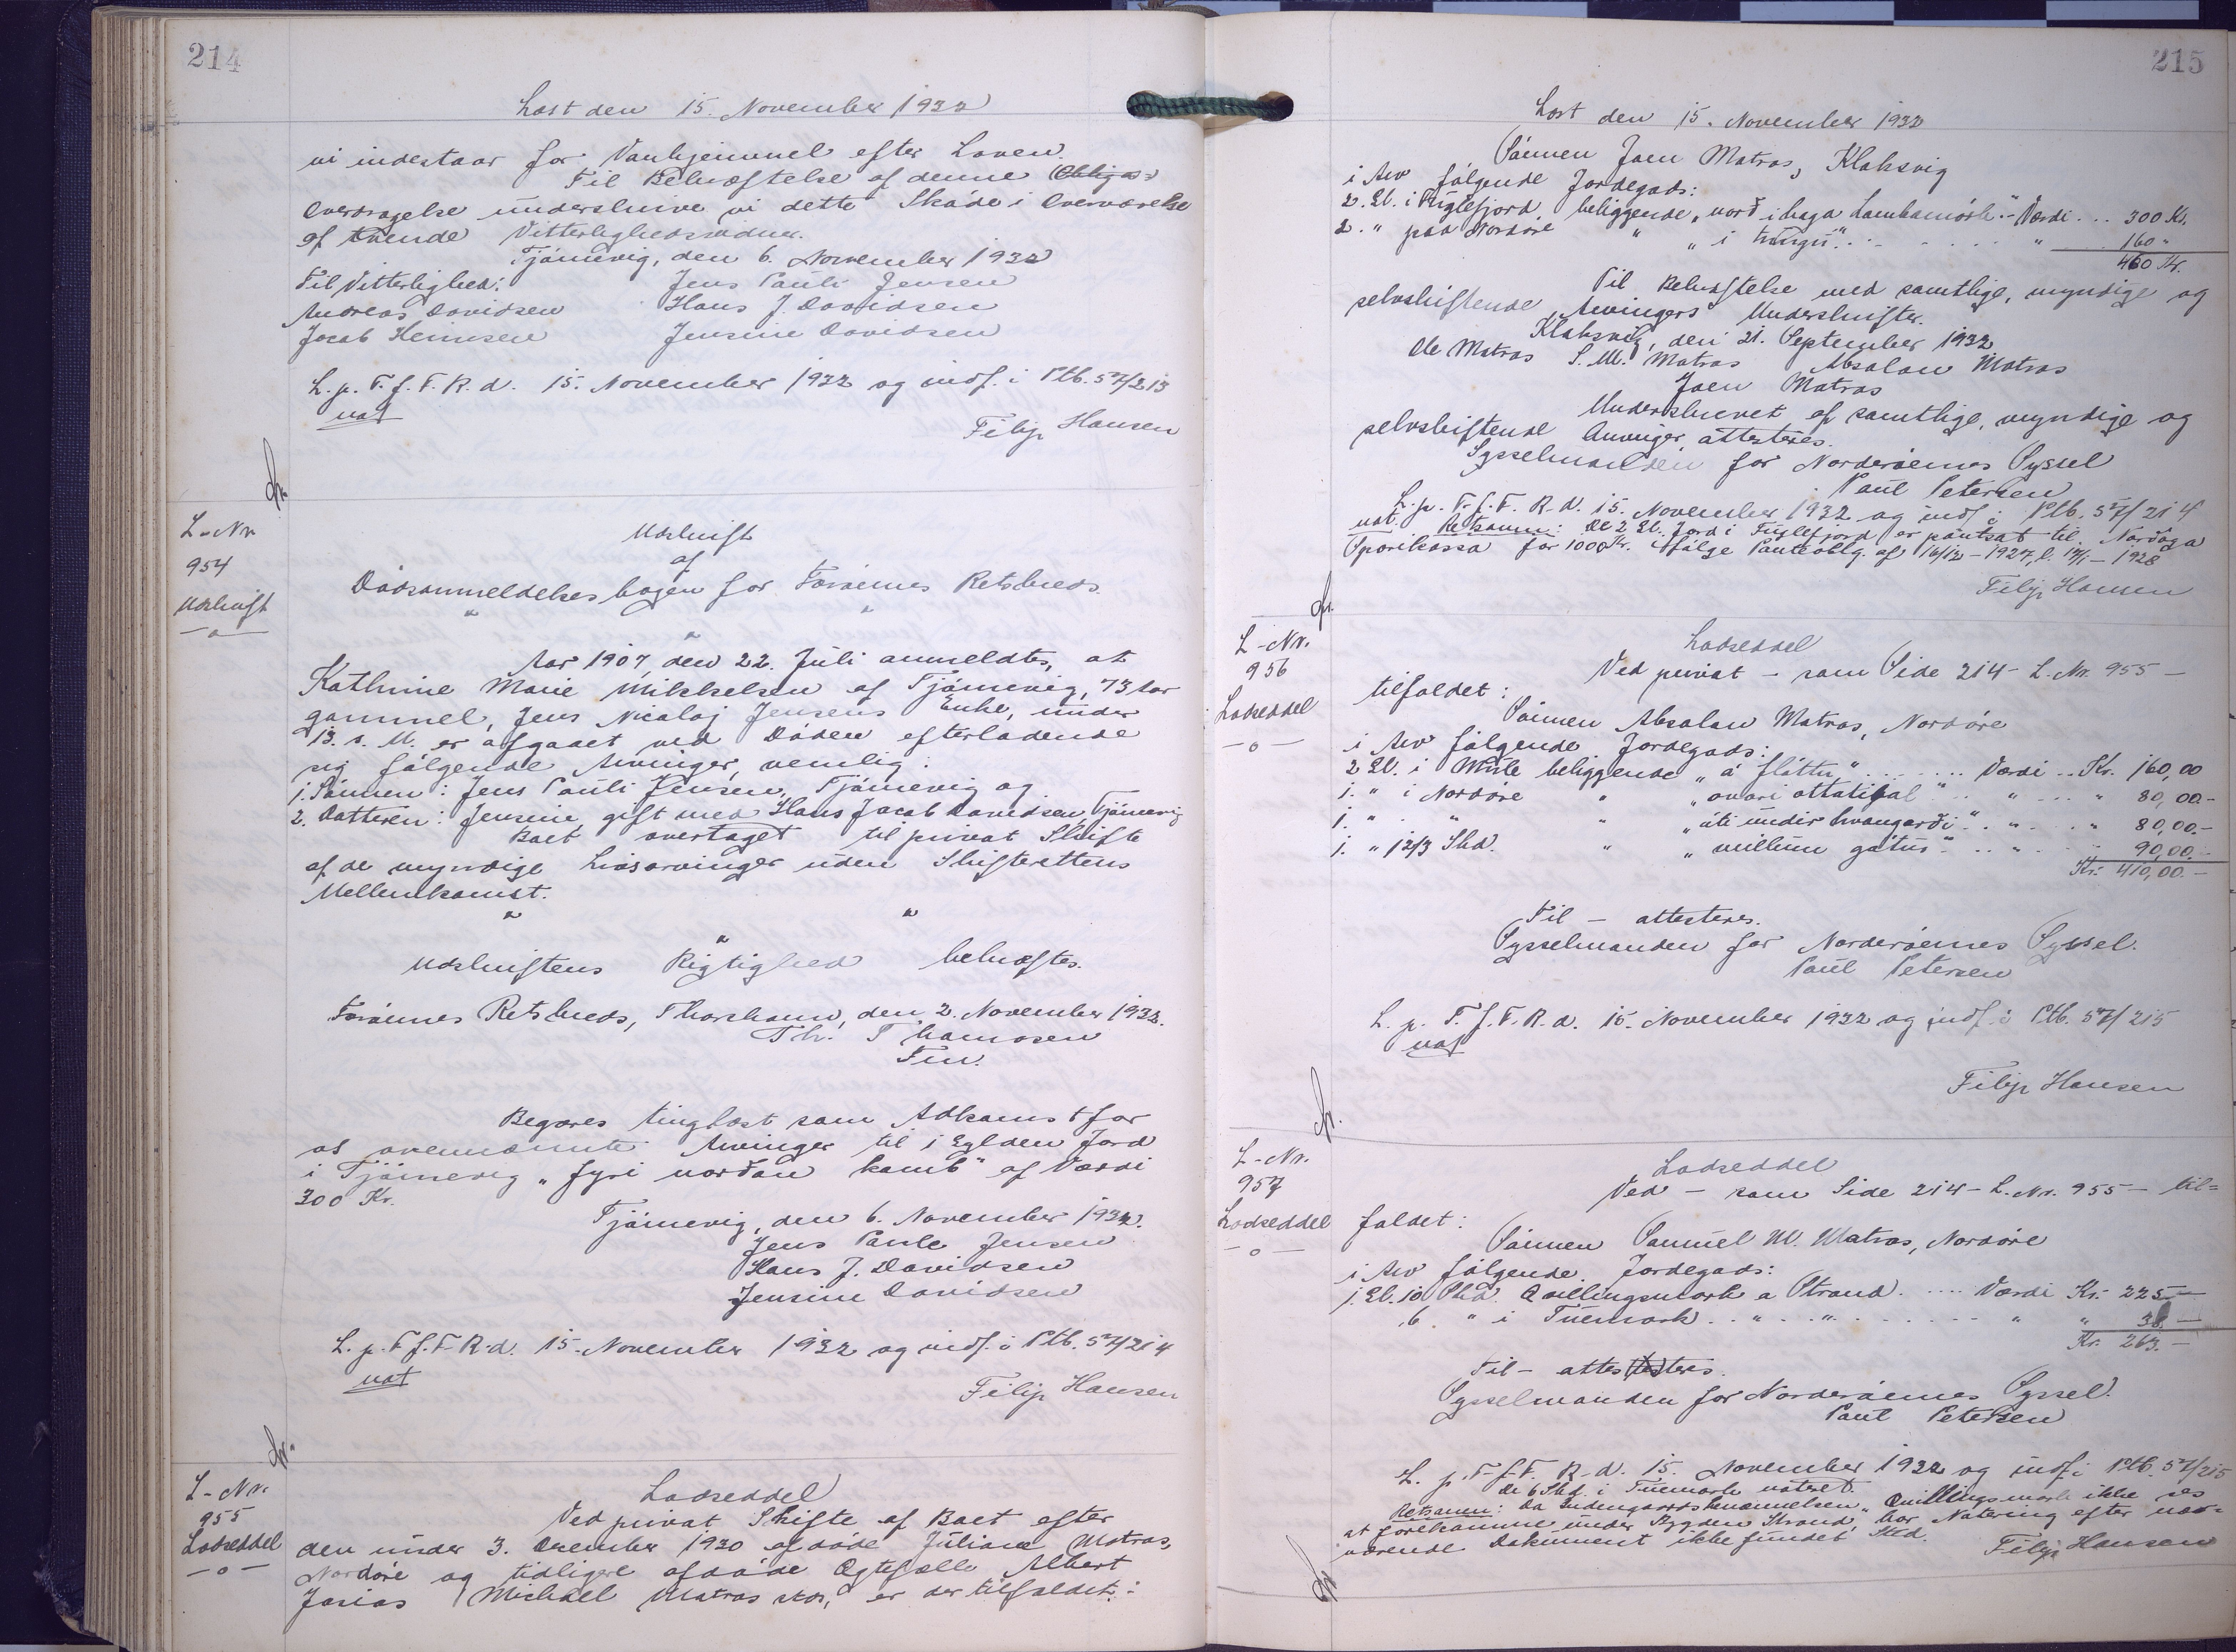 214
Læst den 15. November 1932
vi indestaar for Vanhjemmel efter Loven.
Til Bekræftelse af denne Obligas=
Overdragelse underskrive vi dette Skøde i Overværelse
af tvende Vitterlighedsvidner.
Tjörnevig, den 6. November 1932
Til Vitterlighed: Jens Pauli Jensen
Andreas Davidsen Hans J. Davidsen
Jacob Heinesen Jensine Davidsen
L. p. T. f. F. R. d. 15. November 1932 og indf. i Ptb. 57/213
not
Filip Hansen
L-Nr.
954
Udskrift
—o—
Udskrift
af
Dödsanmeldelsesbogen for Færöernes Retskreds.
" "
"
Aar 1907, den 22. Juli anmeldtes, at
Kathrine Marie Mikkelsen af Tjörnevig, 73 Aar
gammel, Jens Nicolaj Jensens Enke, under
13. s. M. er afgaaet ved Döden efterladende
sig fölgende Arvinger, nemlig:
1. Sönnen: Jens Pauli Jensen, Tjörnevig og
2. Datteren: Jensine, gift med Hans Jacob Davidsen, Tjörnevig
Boet overtaget til privat Skifte
af de myndige Livsarvinger uden Skifterettens
Mellemkomst.
" "
"
Udskriftens Rigtighed bekræftes.
Færöernes Retskreds, Thorshavn, den 2. November 1932.
Th. Thomosen
Fm.
Begæres tinglæst som Adkomst for
os ovennævnte Arvinger til 1 Gylden Jord
i Tjörnevig "fyri norðan kamb" af Værdi
300 Kr.
Tjörnevig, den 6. November 1932.
Jens Paule Jensen
Hans J. Davidsen
Jensine Davidsen
L. p. T. f. F. R. d. 15. November 1932 og indf. i Ptb. 57/214
not
Filip Hansen
L-Nr.
955
Lodseddel
—o—
Lodseddel
Ved privat Skifte af Boet efter
den under 3. December 1930 afdöde Juliane Matras,
Nordöre og tidligere afdöde Ægtefælle Albert
Josias Michael Matras sammest., er der tilfaldet:
215
Læst den 15. November 1932
Sönnen Joen Matras, Klaksvig
i Arv fölgende Jordegods:
2. Gl. i Fuglefjord, beliggende "norð i haga Lambamörk" - Værdi ... 300 Kr.
2. " paa Nordöre " "i trúngu" ... " 160 "
460 Kr.
Til Bekræftelse med samtlige, myndige og
selvskiftende Arvingers Underskrifter.
Klaksvig, den 21. September 1932
Ole Matras S. M. Matras Absalon Matras
Joen Matras
Underskrevet af samtlige, myndige og
selvskiftende Arvinger, attesteres.
Sysselmanden for Norderöernes Syssel
Paul Petersen
L. p. T. f. F. R. d. 15. November 1932 og indf. i Ptb. 57/214
not. Retsanm: De 2 Gl. Jord i Fuglefjord er pantsat til Norðoya
Sparikassa for 1000 Kr. ifölge Panteoblg. af 16/12 - 1927, l. 17/1 - 1928
Filip Hansen
L-Nr.
956
Lodseddel
—o—
Lodseddel
Ved privat - som Side 214 - L. Nr. 955 -
tilfaldet:
Sönnen Absalon Matras, Nordöre
i Arv fölgende Jordegods:
2 Gl. i Mule beliggende "á fløttu" ... Værdi .. Kr. 160,00
1. " i Nordöre " " ... " 80,00.-
1. " " " "úti undir hvangarði" .. " .. " 80,00.-
1. " 12/3 Skd. " "millum gøtur" .. " .. 90,00.-
Kr. 410,00.-
Til - attesteres.
Sysselmanden for Norderöernes Syssel.
Paul Petersen
L. p. T. f. F. R. d. 15. November 1932 og indf. i Ptb. 57/215
not
Filip Hansen
L-Nr.
957
Lodseddel
—o—
Lodseddel
Ved - som Side 214 - L. Nr. 955 - til=
faldet:
Sönnen Samuel M. Matras, Nordöre
i Arv fölgende Jordegods:
1. Gl. 10 Skd. Qvillingsmark a Strond .... Værdi Kr. 225.-
6. " i Tuemark .. " .. " ... " " 38.-
Kr. 263.-
Til - attesteres.
Sysselmanden for Norderöernes Syssel.
Paul Petersen
L. p. T. f. F. R. d. 15. November 1932 og indf. i Ptb. 57/215
De 6 Skd. i Tuemark noteret.
Retsanm: Da Endemarksbenævnelsen "Qvillingsmark ikke ses
at forekomme under Bygden Strand, har Notering efter nær=
værende Dokument ikke fundet Sted.
Filip Hansen